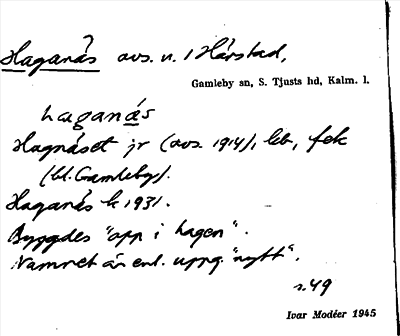 Haganäs avs. u. 1 Hårstad,
Gamleby sn, S. Tjusts hd, Kalm. l.
haganäs
Hagnäset jr (avs. 1914), leb, fek
(bl. Gamleby).
Haganäs k 1931.
Byggdes "opp i hagen".
Namnet är enl. uppg. "nytt".
s. 49
Ivar Modéer 1945